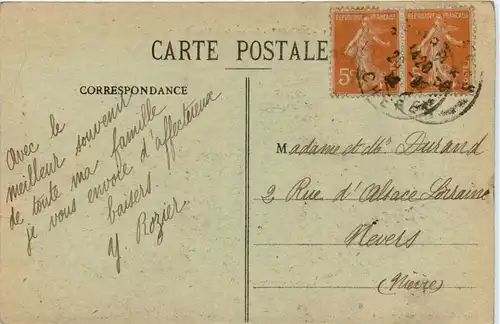 CARTE POSTALE
REPUBLIQUE FRANÇAISE
REPUBLIQUE FRANÇAISE
5c
CORRESPONDANCE
Avec le
meilleur souvenir
de toute ma famille
je vous envoie d'affectueux
baisers
Y. Rozier.
Madame et Mr Durand
2 Rue d'Alsace Lorraine
Nevers
(Nièvre)